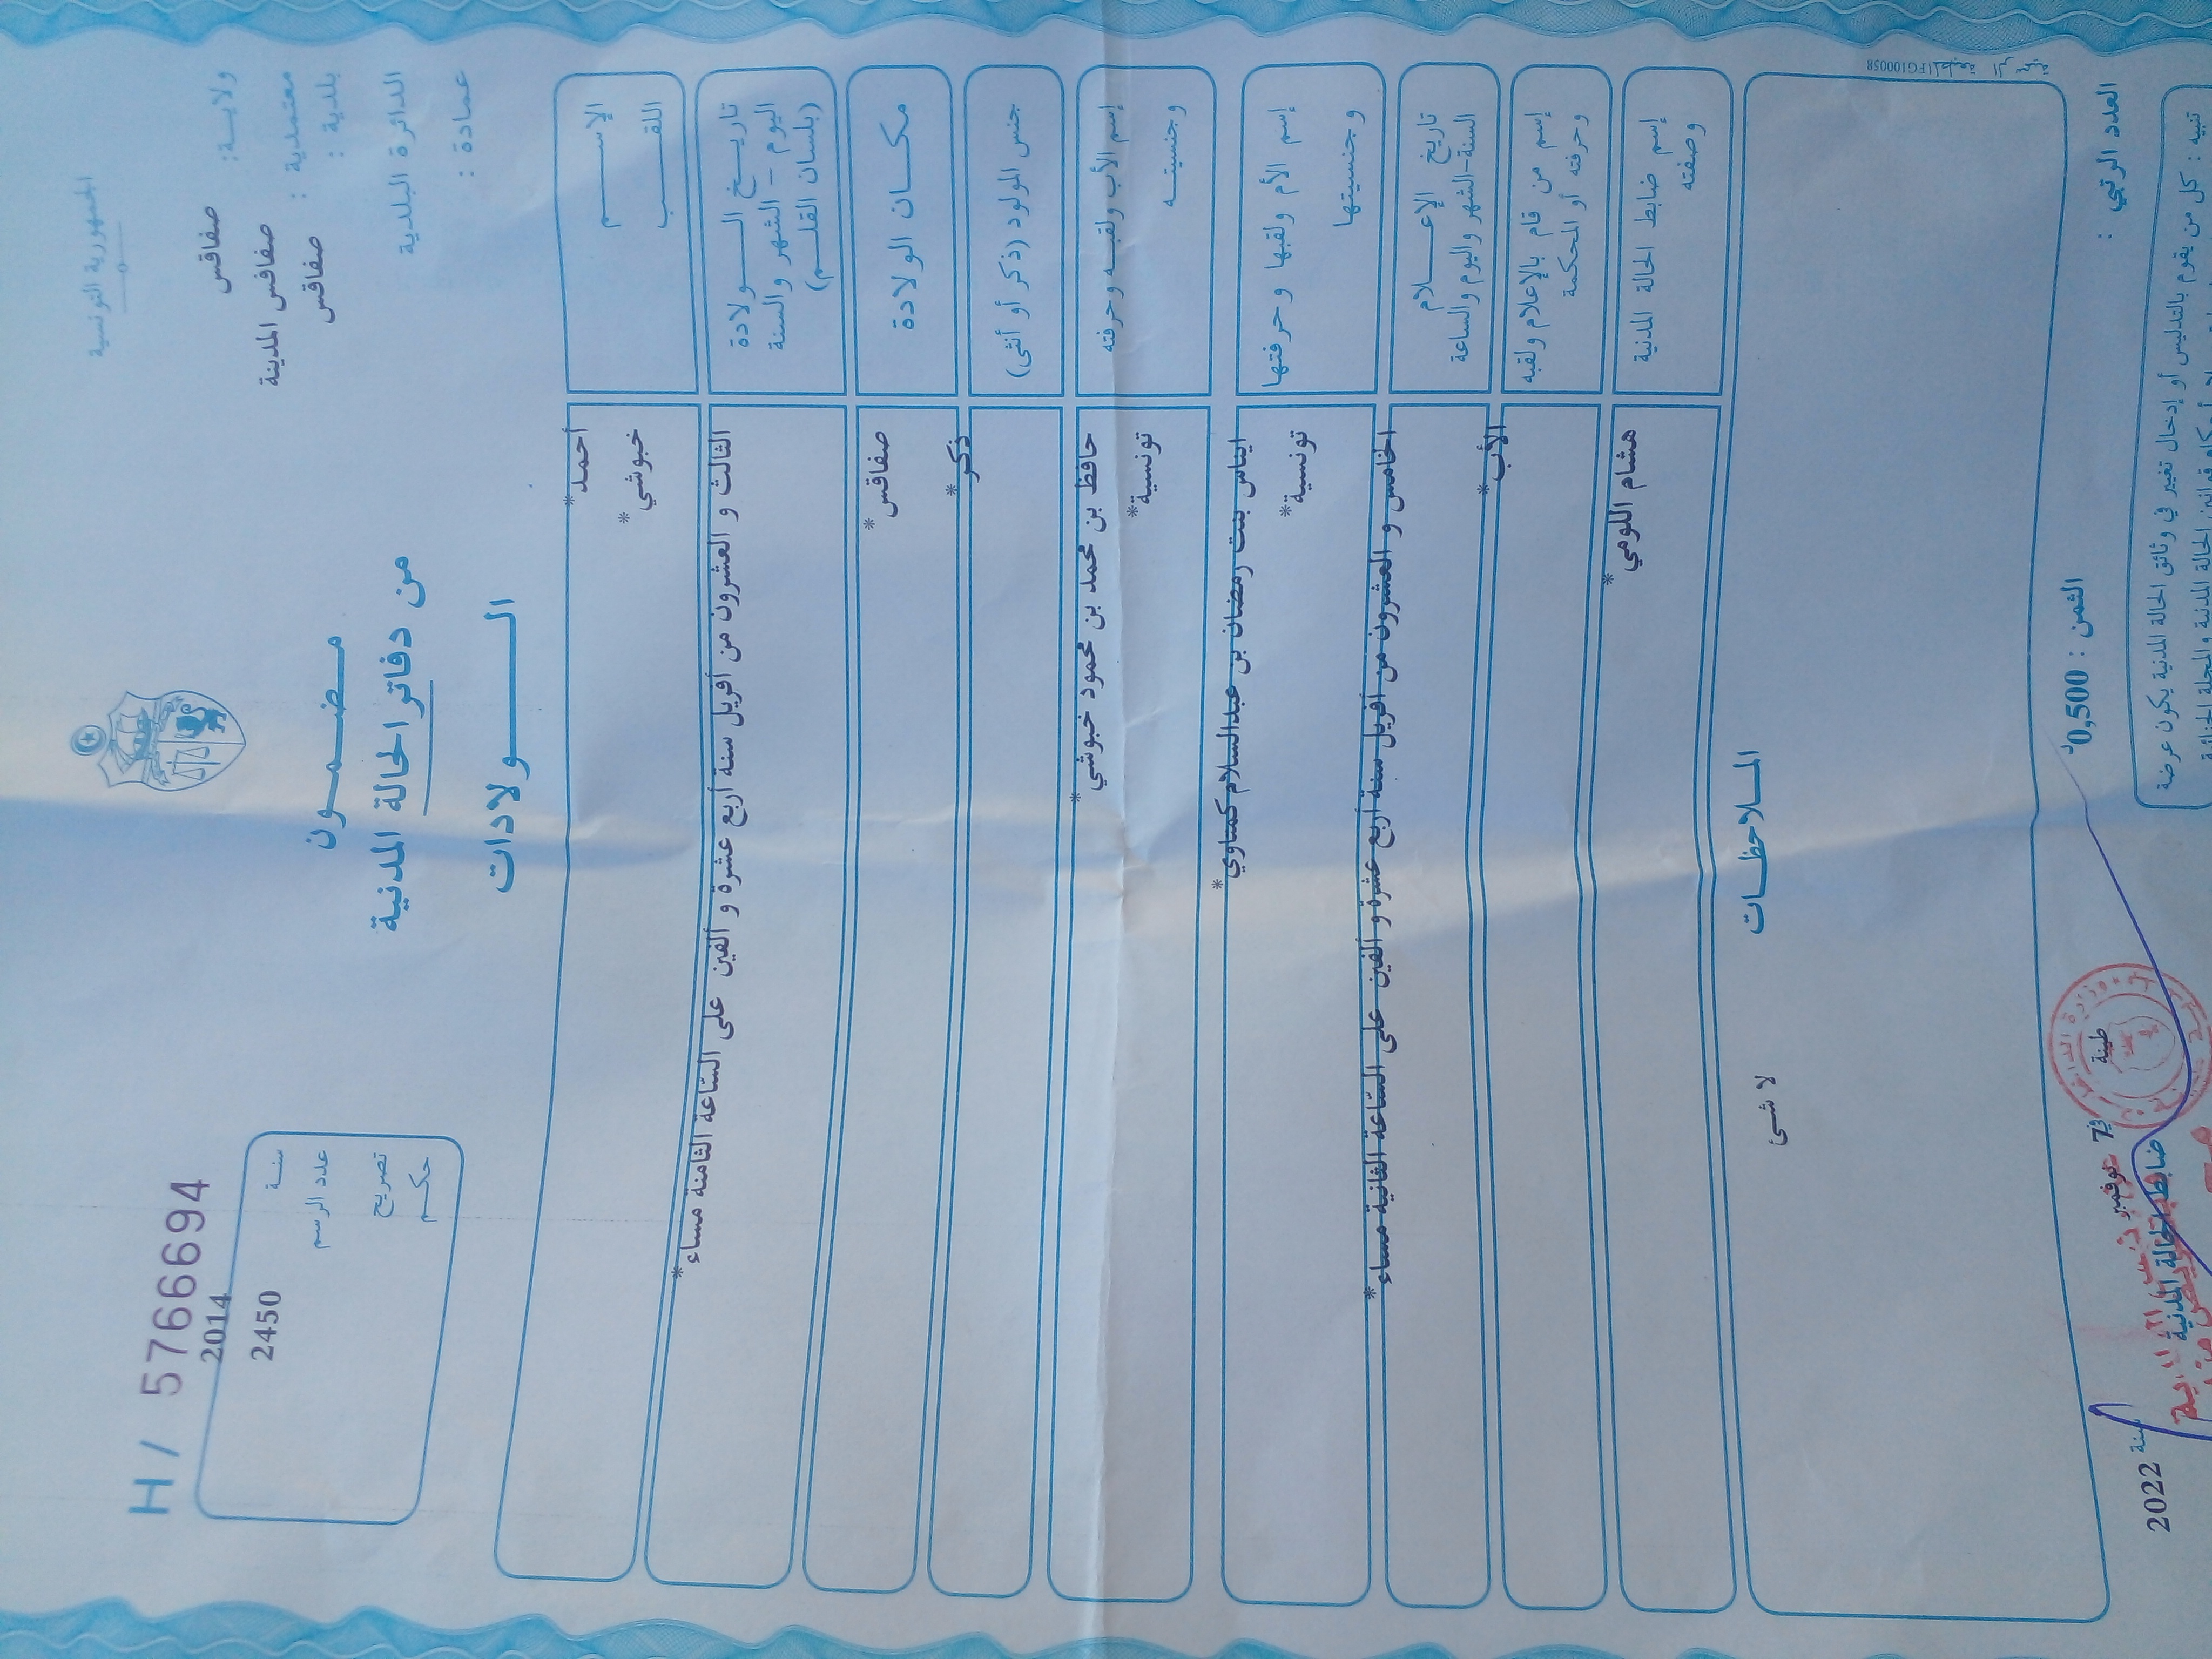 الجمهورية التونسية
H / 5766694
ولايـــة: صفاقس
معتمدية : صفاقس المدينة
بلدية : صفاقس
الدائرة البلدية
عمادة :
مـضـمـــون
من دفاتر الحالة المدنية
الـــولادات
سنـة 2014
عدد الرسم 2450
تصريح
حكـم
الإســـــم أحمد*
اللقـــــب خبوشي*
تاريـــخ الـــــولادة
اليوم - الشهر والسنة
(بلسان القلـــم)
الثالث و العشرون من أفريل سنة أربع عشرة و ألفين على الساعة الثامنة مساء*
مكـــان الولادة صفاقس*
جنس المولود (ذكر أو أنثى) ذكر*
إسم الأب ولقبـــه وحرفته حافظ بن محمد بن محمود خبوشي*
وجنسيتـــه تونسية*
إسم الأم ولقبها وحرفتها ايناس بنت رمضان بن عبدالسلام كمناوي*
وجنسيتها تونسية*
تاريخ الإعـــــلام
السنة-الشهر واليوم والساعة
الخامس و العشرون من أفريل سنة أربع عشرة و ألفين على الساعة الثانية مساء*
إسم من قام بالإعلام ولقبه
وحرفته أو المحكمة
الأب*
إسم ضابط الحالة المدنية
وصفته
هشام اللومي*
المـــلاحظـــات
لا شىء
FG100058
العدد الرتبي :
الثمن : 0,500د
طينة في 7 نوفمبر سنة 2022
ضابط الحالة المدنية
تنبيه : كل من يقوم بالتدليس أو إدخال تغيير في وثائق الحالة المدنية يكون عرضة